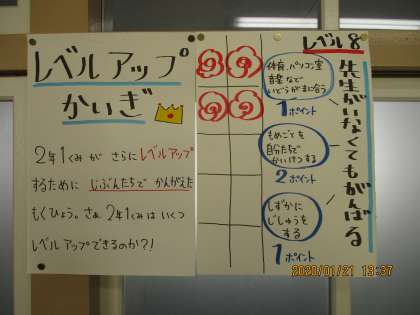 レベルアップ
かいぎ
2年1くみが さらにレベルアップ
するために じぶんたちで かんがえた
もくひょう。さぁ、2年1くみは いくつ
レベルアップできるのか?!
レベル8
先生がいなくてもがんばる
体育、パソコン室
音楽などで
いどうがまに合う
1ポイント
もめごとを
自分たちで
かいけつする
2ポイント
しずかに
じしゅうを
する
1ポイント
2020/01/21 13:37